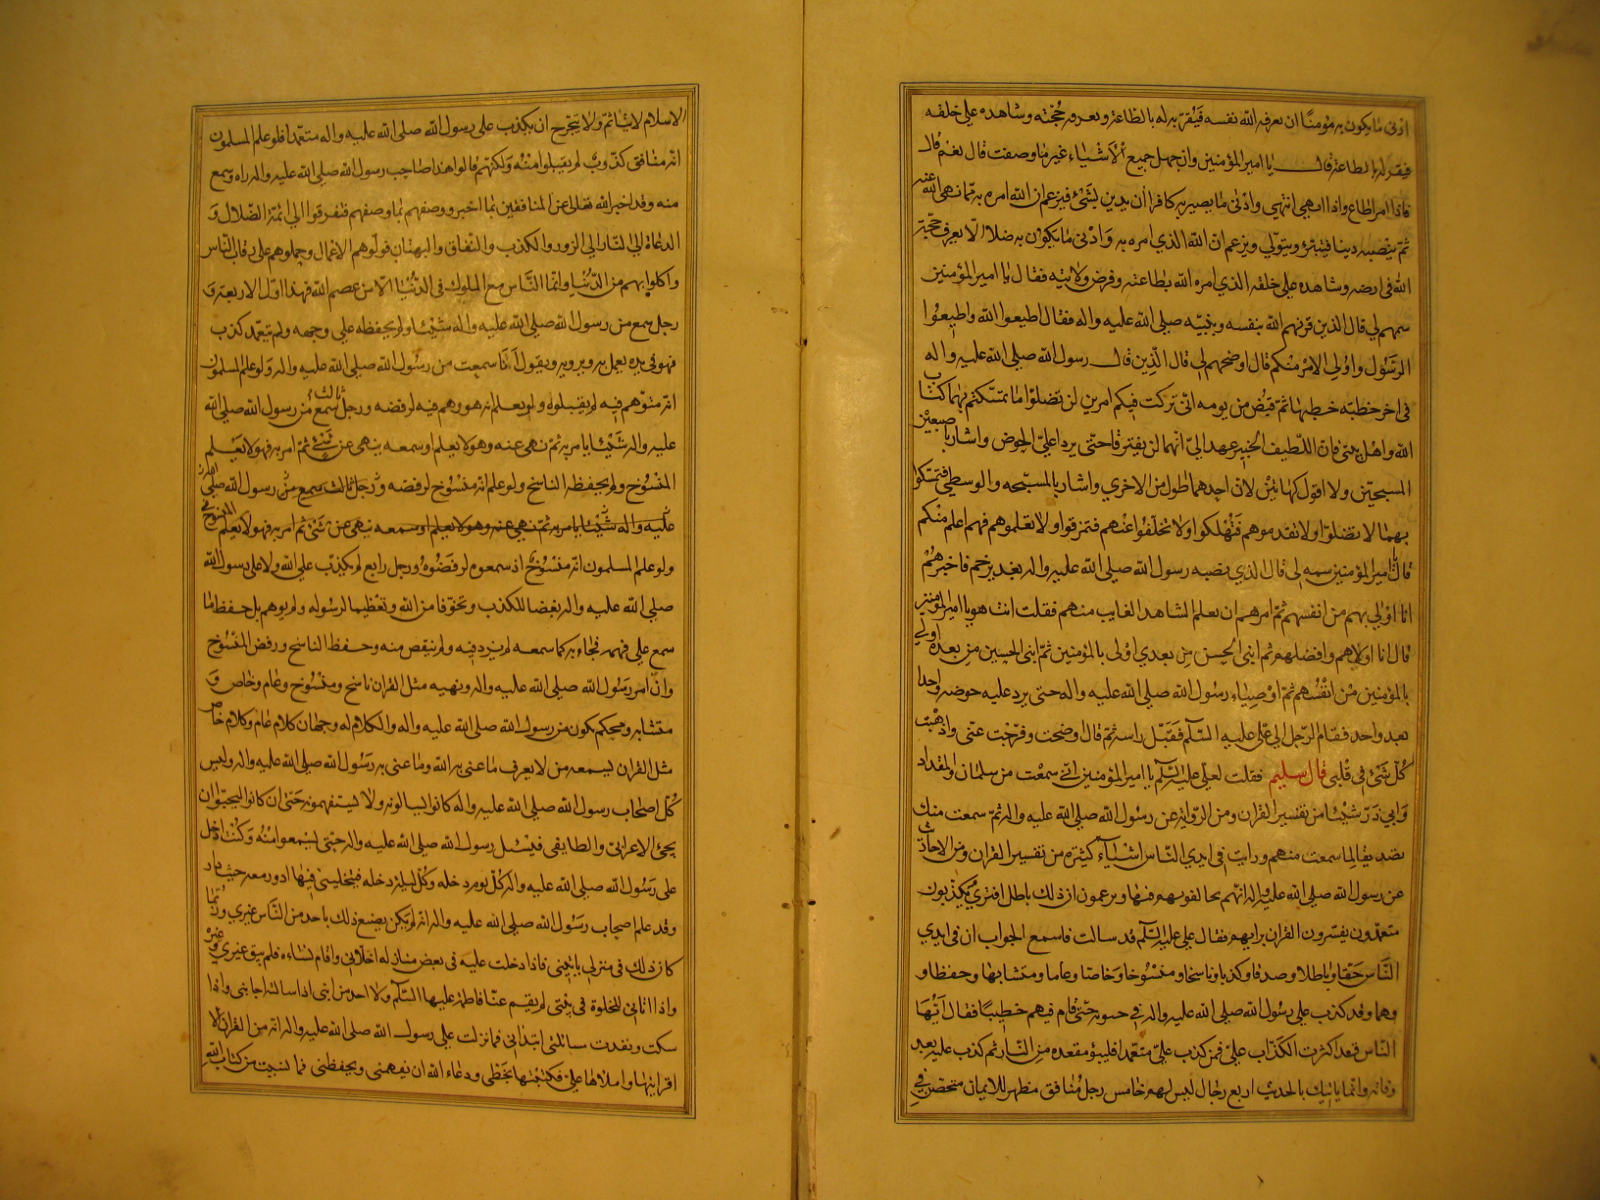 ادنى ما يكون به مؤمنا ان يعرفه الله نفسه فيقر به له بالطاعة ويعرفه حجته وشاهده على خلقه
فيقر له بالطاعة قال يا امير المؤمنين وان جهل جميع الأشياء غير ما وصفت قال نعم
فاذا امر اطاع واذا نهى انتهى وادنى ما يصير به كافرا ان يدين بشئ فيزعم ان الله امره به مما نهى الله عنه
ثم ينصبه دينا فيتبرء ويتولى ويزعم ان الله الذي امره به وادنى ما يكون به ضلالا لا يعرف حجة
الله في ارضه وشاهده على خلقه الذي امره الله بطاعته وفرض ولايته فقال يا امير المؤمنين
سمهم لي قال الذين قرنهم الله بنفسه وبنبيه صلى الله عليه واله فقال اطيعوا الله واطيعوا
الرسول واولي الامر منكم قال اوضحهم لي قال الذين قال رسول الله صلى الله عليه واله
في اخر خطبة خطبها ثم قبض من يومه اني تركت فيكم امرين لن تضلوا ما تمسكتم بهما كتاب
الله واهل بيتي فان اللطيف الخبير عهد الي انهما لن يفترقا حتى يردا علي الحوض واشار باصبعين
المسبحتين ولا اقول كهاتين لان احدهما اطول من الاخرى واشار بالمسبحة والوسطى فتمسكوا
بهما لا تضلوا ولا تقدموهم فتهلكوا ولا تخلفوا عنهم فتمزقوا ولا تعلموهم فهم اعلم منكم
قال يا امير المؤمنين سمه لي قال الذي نصبه رسول الله صلى الله عليه واله بغدير خم فاخبرهم
انا اولى بهم من انفسهم ثم امرهم ان يعلم الشاهد الغايب منهم فقلت انت هو يا امير المؤمنين
قال انا اولاهم وافضلهم ثم ابني الحسن من بعدي اولى بالمؤمنين ثم ابني الحسين من بعده اولى
بالمؤمنين من انفسهم ثم اوصياء رسول الله صلى الله عليه واله حتى يرد عليه حوضه واحدا
بعد واحد فقام الرجل الى علي عليه السلم فقبل راسه ثم قال وضحت وفرجت عني واذهبت
كل شئ في قلبي قال سليم فقلت لعلي عليه السلم يا امير المؤمنين اني سمعت من سلمان والمقداد
وابي ذر شيئا من تفسير القران ومن الرواية عن رسول الله صلى الله عليه واله ثم سمعت منك
تصديقا لما سمعت منهم ورايت في ايدي الناس اشياء كثيرة من تفسير القران ومن الاحاديث
عن رسول الله صلى الله عليه واله انهم يخالفونهم فيها ويزعمون ان ذلك باطل افترى يكذبون
متعمدون يفسرون القران برايهم فقال علي عليه السلم قد سالت فاسمع الجواب ان في ايدي
الناس حقا وباطلا وصدقا وكذبا وناسخا ومنسوخا وخاصا وعاما ومتشابها وحفظا و
وهما وقد كذب على رسول الله صلى الله عليه واله في حيوته حتى قام فيهم خطيبا فقال ايها
الناس قد اكثرت الكذاب علي فمن كذب علي متعمدا فليبؤ مقعده من النار ثم كذب عليه بعد
وفاته وانما ياتيك بالحديث اربع رجال ليس لهم خامس رجل منافق مظهر للايمان
الاسلام لا يتاثم ولا يتحرج ان يكذب على رسول الله صلى الله عليه واله متعمدا فلو علم المسلمون
انه منافق كذوب لم يقبلوا منه ولكنهم قالوا هذا صاحب رسول الله صلى الله عليه واله راه وسمع
منه وقد اخبر الله تعالى عن المنافقين بما اخبر ووصفهم بما وصفهم فتفرقوا الى ائمة الضلال و
الدعاة الى النار الى الزور والكذب والنفاق والبهتان فولوهم الاعمال وحملوهم على رقاب الناس
واكلوا بهم من الدنيا وانما الناس مع الملوك في الدنيا الا من عصم الله فهذا اول الاربعة و
رجل سمع من رسول الله صلى الله عليه واله شيئا ولم يحفظه على وجهه ولم يتعمد كذب
فهو في يده يعمل به ويرويه ويقول انا سمعت من رسول الله صلى الله عليه واله ولو علم المسلمون
انه متوهم فيه لم يقبلوه ولو يعلم انه هو وهم فيه لرفضه ورجل ثالث سمع من رسول الله صلى الله
عليه واله شيئا يامر به ثم نهى عنه وهو لا يعلم او سمعه ينهى عن شئ ثم امر به فهو لا يعلم
المنسوخ ولم يحفظ الناسخ ولو علم انه منسوخ لرفضه ورجل ثالث سمع من رسول الله صلى الله
عليه واله شيئا يامر به ثم نهى عنه وهو لا يعلم او سمعه ينهى عن شئ ثم امر به فهو لا يعلم
ولو علم المسلمون انه منسوخ اذ سمعوه لرفضوه ورجل رابع لم يكذب على الله ولا على رسول الله
صلى الله عليه واله بغضا للكذب وتخوفا من الله وتعظيما لرسوله ولم يوهم بل حفظ ما
سمع على فهمه فجاء به كما سمعه لم يزد فيه ولم ينقص منه وحفظ الناسخ ورفض المنسوخ
وان امر رسول الله صلى الله عليه واله ونهيه مثل القران ناسخ ومنسوخ وعام وخاص و
متشابه ومحكم يكون من رسول الله صلى الله عليه واله والكلام له وجهان كلام عام وكلام خاص
مثل القران يسمعه من لا يعرف ما عنى به الله وما عنى به رسول الله صلى الله عليه واله وليس
كل اصحاب رسول الله صلى الله عليه واله كانوا يسالونه ولا يستفهمونه حتى ان كانوا ليحبون ان
يجئ الاعرابي والطايفي فيسئل رسول الله صلى الله عليه واله حتى يسمعوا منه وكنت ادخل
على رسول الله صلى الله عليه واله كل يوم دخله وكل ليلة دخله فيخليني فيها ادور معه حيث دار
وقد علم اصحاب رسول الله صلى الله عليه واله انه لم يكن يصنع ذلك باحد من الناس غيري وربما
كان ذلك في منزلي ياتيني فاذا دخلت عليه في بعض منازله اخلاني واقام نساءه فلم يبق غيري وغيره
واذا اتاني للخلوة في بيتي لم يقم عنا فاطمة عليها السلم ولا احد من ابني اذا سالته اجابني واذا
سكت ونفدت مسائلي ابتداني فما نزلت على رسول الله صلى الله عليه واله اية من القران الا
اقرانيها واملاها علي فكتبتها بخطي ودعاء الله ان يفهمني ويحفظني فما نسيت من كتاب الله